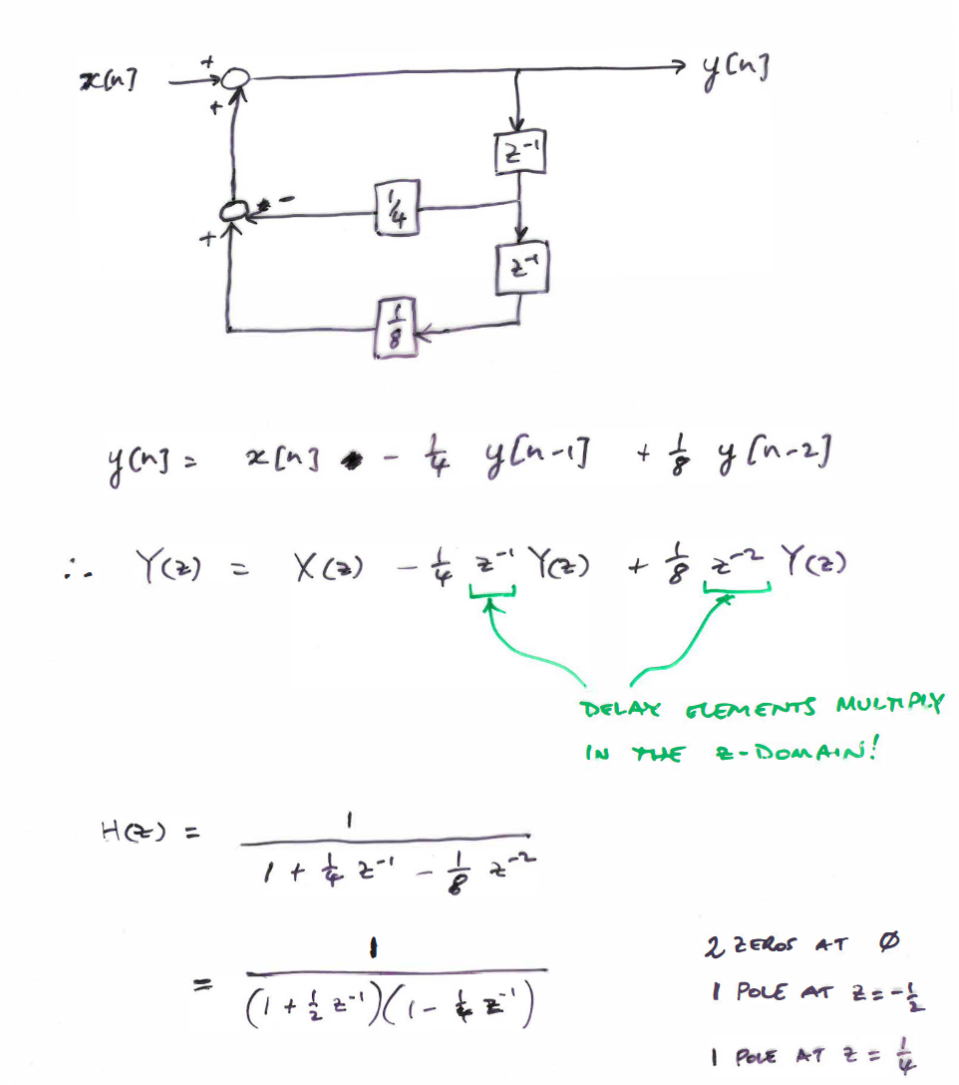 x[n] + y[n]
+
z⁻¹
1/4 -
+
z⁻¹
1/8
y[n] = x[n] - 1/4 y[n-1] + 1/8 y[n-2]
∴ Y(z) = X(z) - 1/4 z⁻¹ Y(z) + 1/8 z⁻² Y(z)
DELAY ELEMENTS MULTIPLY
IN THE z-DOMAIN!
H(z) = 1 / (1 + 1/4 z⁻¹ - 1/8 z⁻²)
= 1 / ((1 + 1/2 z⁻¹)(1 - 1/4 z⁻¹))
2 ZEROS AT Ø
1 POLE AT z = -1/2
1 POLE AT z = 1/4